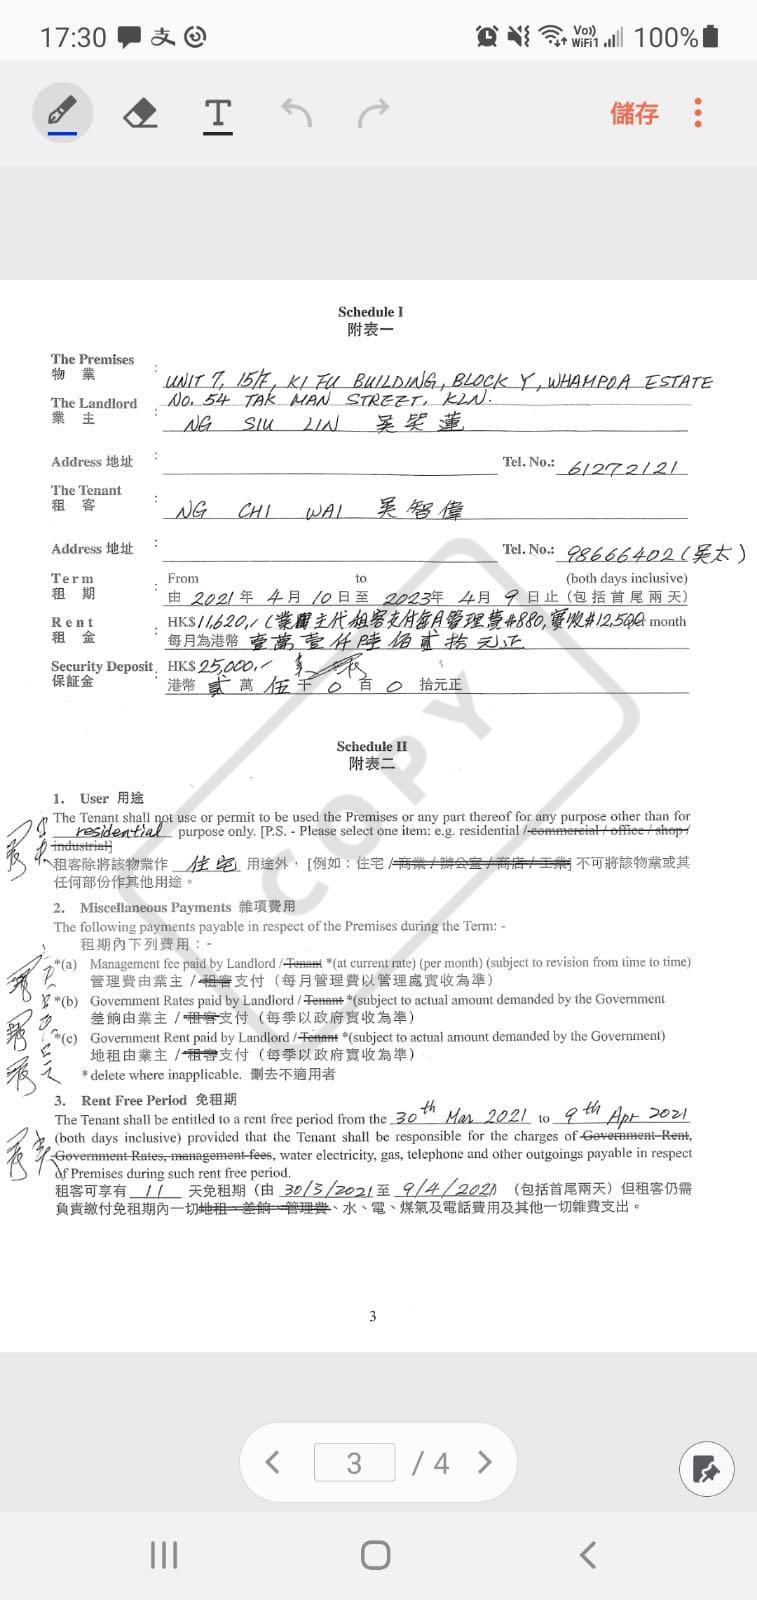 17:30 支 Vo)) WiFi1 100%
T 儲存
Schedule I
附表一
The Premises
物 業 : UNIT 7, 15/F, KI FU BUILDING, BLOCK Y, WHAMPOA ESTATE
The Landlord NO. 54 TAK MAN STREET, KLN.
業 主 : NG SIU LIN 吳笑蓮
Address 地址 : Tel. No.: 61272121
The Tenant
租 客 : NG CHI WAI 吳智偉
Address 地址 : Tel. No.: 98666402 (吳太)
Term From to (both days inclusive)
租 期 : 由 2021 年 4 月 10 日至 2023年 4 月 9 日止 (包括首尾兩天)
Rent HK$11,620./ (業主代租客支付每月管理費#880, 實收#12,500 month
租 金 : 每月為港幣 壹萬壹仟陸佰貳拾元正
Security Deposit HK$25,000./
保証金 : 港幣 貳 萬 伍 千 0 百 0 拾元正
COPY
Schedule II
附表二
1. User 用途
The Tenant shall not use or permit to be used the Premises or any part thereof for any purpose other than for
residential purpose only. [P.S. - Please select one item: e.g. residential / commercial / office / shop /
industrial]
租客除將該物業作 住宅 用途外，[例如：住宅 / 商業 / 辦公室 / 商店 / 工業] 不可將該物業或其
任何部份作其他用途。
2. Miscellaneous Payments 雜項費用
The following payments payable in respect of the Premises during the Term: -
租期內下列費用：-
*(a) Management fee paid by Landlord / Tenant *(at current rate) (per month) (subject to revision from time to time)
管理費由業主 / 租客支付 (每月管理費以管理處實收為準)
*(b) Government Rates paid by Landlord / Tenant *(subject to actual amount demanded by the Government
差餉由業主 / 租客支付 (每季以政府實收為準)
*(c) Government Rent paid by Landlord / Tenant *(subject to actual amount demanded by the Government)
地租由業主 / 租客支付 (每季以政府實收為準)
* delete where inapplicable. 刪去不適用者
3. Rent Free Period 免租期
The Tenant shall be entitled to a rent free period from the 30th Mar 2021 to 9th Apr 2021
(both days inclusive) provided that the Tenant shall be responsible for the charges of Government Rent,
Government Rates, management fees, water electricity, gas, telephone and other outgoings payable in respect
of Premises during such rent free period.
租客可享有 11 天免租期 (由 30/3/2021 至 9/4/2021) (包括首尾兩天) 但租客仍需
負責繳付免租期內一切地租、差餉、管理費、水、電、煤氣及電話費用及其他一切雜費支出。
3
3 / 4